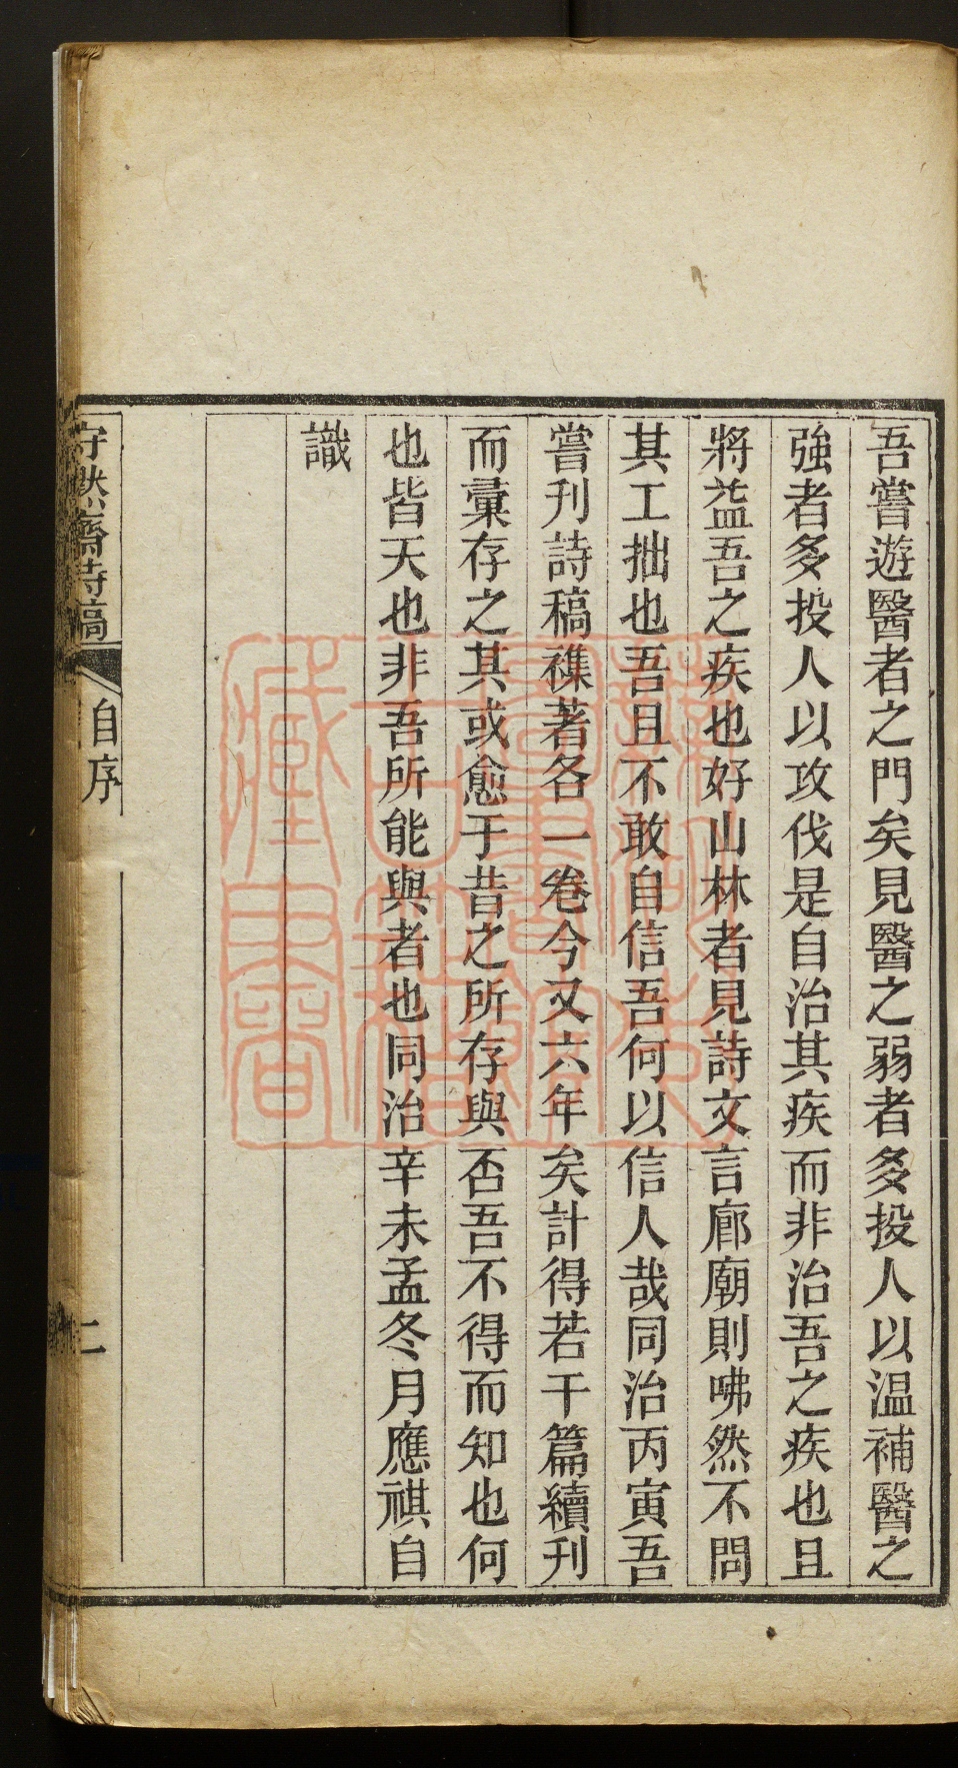 吾嘗遊醫者之門矣見醫之弱者多投人以温補醫之
強者多投人以攻伐是自治其疾而非治吾之疾也且
將益吾之疾也好山林者見詩文言廊廟則咈然不問
其工拙也吾且不敢自信吾何以信人哉同治丙寅吾
嘗刊詩稿襍著各一卷今又六年矣計得若干篇續刊
而彙存之其或愈于昔之所存與否吾不得而知也何
也皆天也非吾所能與者也同治辛未孟冬月應祺自
識
守默齋詩稿
自序
二
藏書